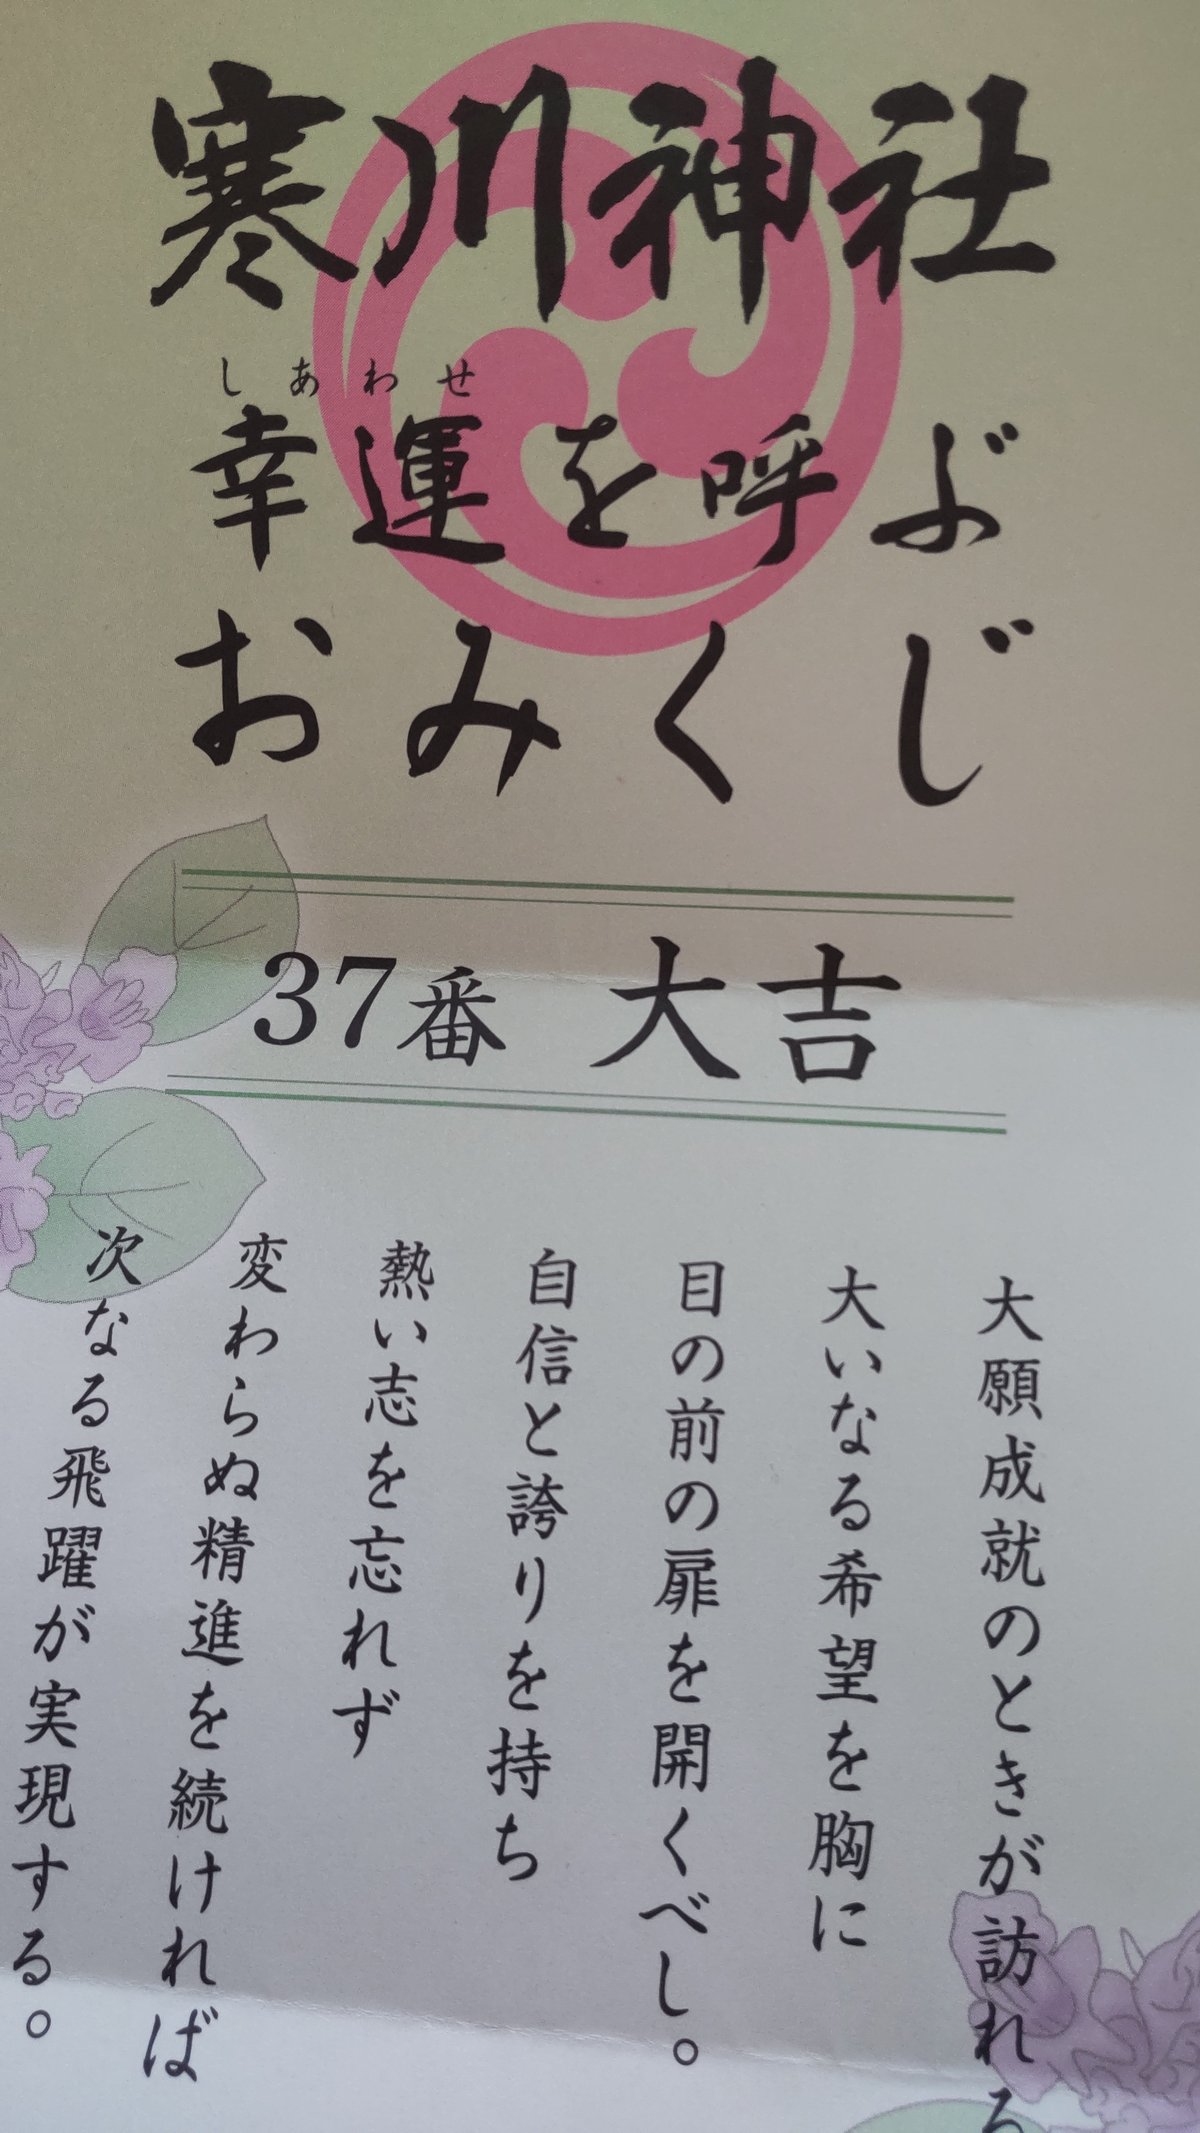 寒川神社
しあわせ
幸運を呼ぶ
おみくじ
37番 大吉
大願成就のときが訪れる
大いなる希望を胸に
目の前の扉を開くべし。
自信と誇りを持ち
熱い志を忘れず
変わらぬ精進を続ければ
次なる飛躍が実現する。